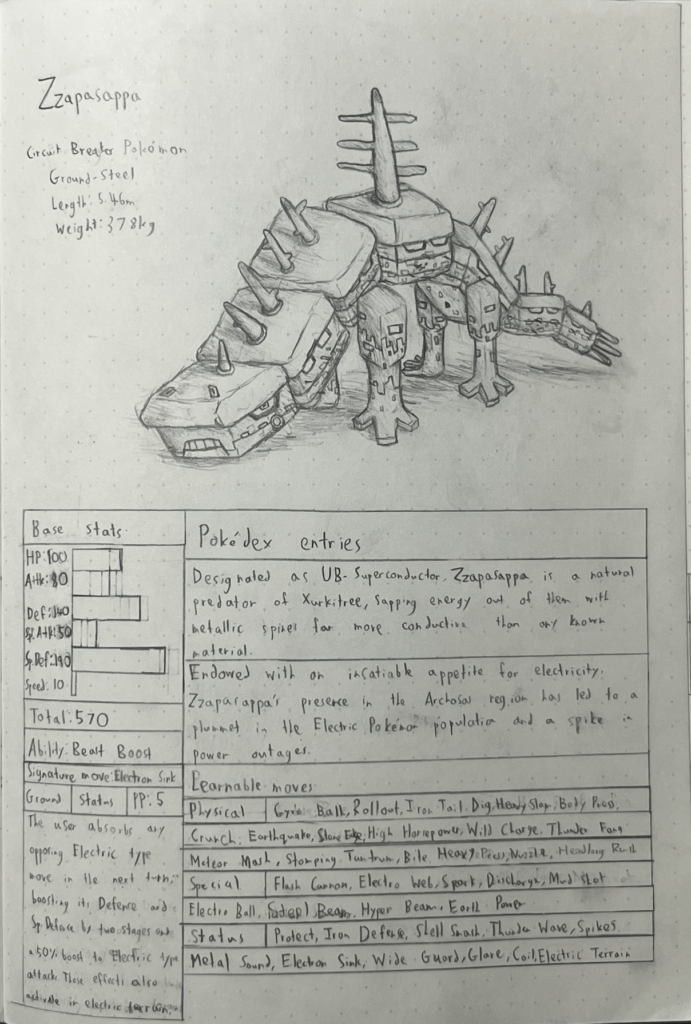 Zzapasappa
Circuit Breaker Pokémon
Ground-Steel
Length: 5.46m
Weight: 378kg
Base stats
HP:100
Attk:80
Def:140
Sp.Attk:50
Sp.Def:190
Speed: 10
Total:570
Ability: Beast Boost
Signature move: Electron Sink
Ground
Status
PP: 5
The user absorbs any
opposing Electric type
move in the next turn,
boosting its Defence and
Sp.Defence by two stages and
a 50% boost to Electric type
attack. These effects also
activate in electric terrain.
Pokédex entries
Designated as UB-Superconductor, Zzapasappa is a natural
predator of Xurkitree, sapping energy out of them with
metallic spires far more conductive than any known
material.
Endowed with an insatiable appetite for electricity.
Zzapasappa's presence in the region has led to a
plummet in the Electric Pokémon population and a spike in
power outages.
Learnable moves
Physical
Gyro Ball, Rollout, Iron Tail, Dig, Heavy Slam, Body Press,
Crunch, Earthquake, Stone Edge, High Horsepower, Wild Charge, Thunder Fang
Meteor Mash, Stomping Tantrum, Bite, Heavy Press, Nuzzle, Headlong Rush
Special
Flash Cannon, Electro Web, Spark, Discharge, Mud Shot
Electro Ball, Beam, Hyper Beam, Earth Power
Status
Protect, Iron Defense, Shell Smash, Thunder Wave, Spikes
Metal Sound, Electron Sink, Wide Guard, Glare, Coil, Electric Terrain